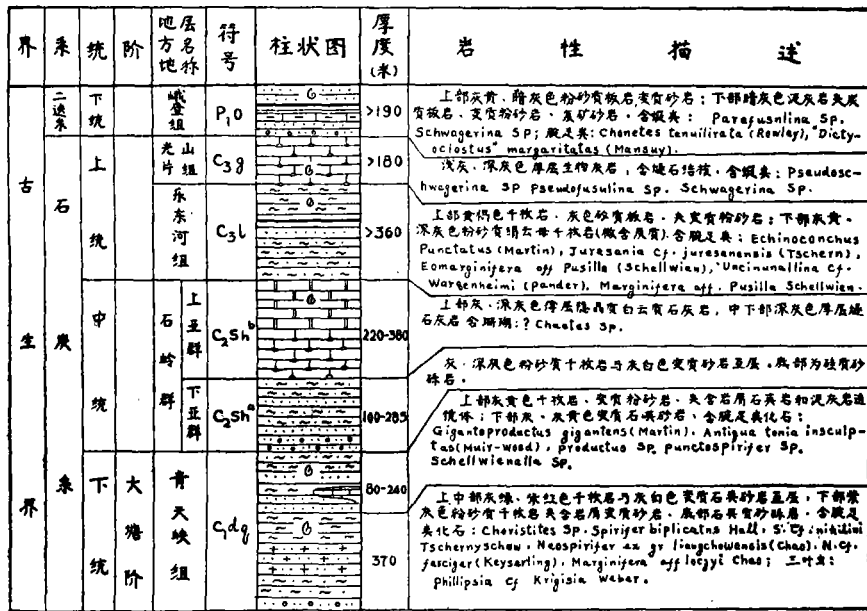 界 系 统 阶 地方地层名称 符号 柱状图 厚度(米) 岩性描述
古生界
二迭系 下统 峨登组 P₁O >190
上部灰黄、暗灰色粉砂质板岩、变质砂岩；下部暗灰色泥灰岩夹炭
质板岩、变质粉砂岩、含䗴类： Parafusnlina Sp.
Schwagerina SP；腕足类：Chonetes tenuilirata (Rowley), "Dicty-
ociostus" margaritatas (Mansuy).
石炭系
上统 光片山组 C₃g >180
浅灰、深灰色厚层生物灰岩，含燧石结核，含䗴类：Pseudosc-
hwagerina SP Pseudofusulina Sp. Schwagerina Sp.
乐东河组 C₃l >360
上部黄褐色千枚岩、灰色砂质板岩、夹变质粉砂岩；下部灰黄、
深灰色粉砂质绢云母千枚岩(微含炭质)含腕足类：Echinoconchus
Punctatus (Martin), Juresania Cf. juresanensis (Tschern),
Eomarginifera aff Pusilla (Schellwien), Uncinunallina Cf.
Wargenheimi (Pander), Marginifera aff. Pusilla Schellwien.
中统 石岭群 上亚群 C₂Shᵇ 220-380
上部灰、深灰色厚层隐晶质白云质石灰岩，中下部深灰色厚层燧
石灰岩含珊瑚：? Chaetes Sp.
下亚群 C₂Shᵃ 160-285
灰、深灰色粉砂质千枚岩与灰白色变质砂岩互层。底部为硅质砂
砾岩。
下统 大塘阶 青天峡组 C₁dq 80-240
上部灰黄色千枚岩、变质粉砂岩、夹含岩屑石英岩和泥灰岩透
镜体；下部灰、灰黄色变质石英砂岩、含腕足类化石：
Gigantoproductus gigantens (Martin). Antiqua tonia insculp-
tas (Muir-Wood), productus Sp. punctospirifer Sp.
Schellwienella Sp.
370
上中部灰绿、紫红色千枚岩与灰白色变质石英砂岩互层，下部紫
色粉砂质千枚岩夹含岩屑变质砂岩、底部石英质砂砾岩、含腕足
类化石：Choristites Sp. Spirifer biplicatns Hall, S. Cf. nikitini
Tschernyschow, Neospirifer ex gr liangchowensis (Chao), N. Cf.
fasciger (Keyserling), Marginifera aff loczyi Chao； 三叶虫：
Phillipsia Cf Krigisia Weber.